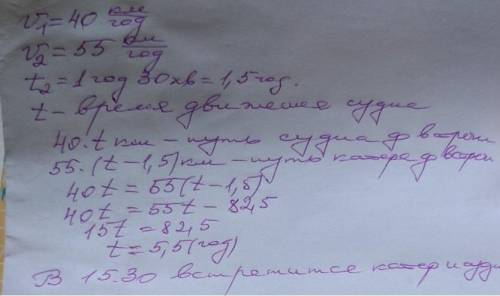 v₁ = 40 км/год
v₂ = 55 км/год
t₂ = 1 год 30 хв = 1,5 год.
t - время движения судна
40·t км - путь судна до встречи
55·(t-1,5) км - путь катера до встреч
40t = 55(t-1,5)
40t = 55t - 82,5
15t = 82,5
t = 5,5 (год)
В 15.30 встретится катер и судн